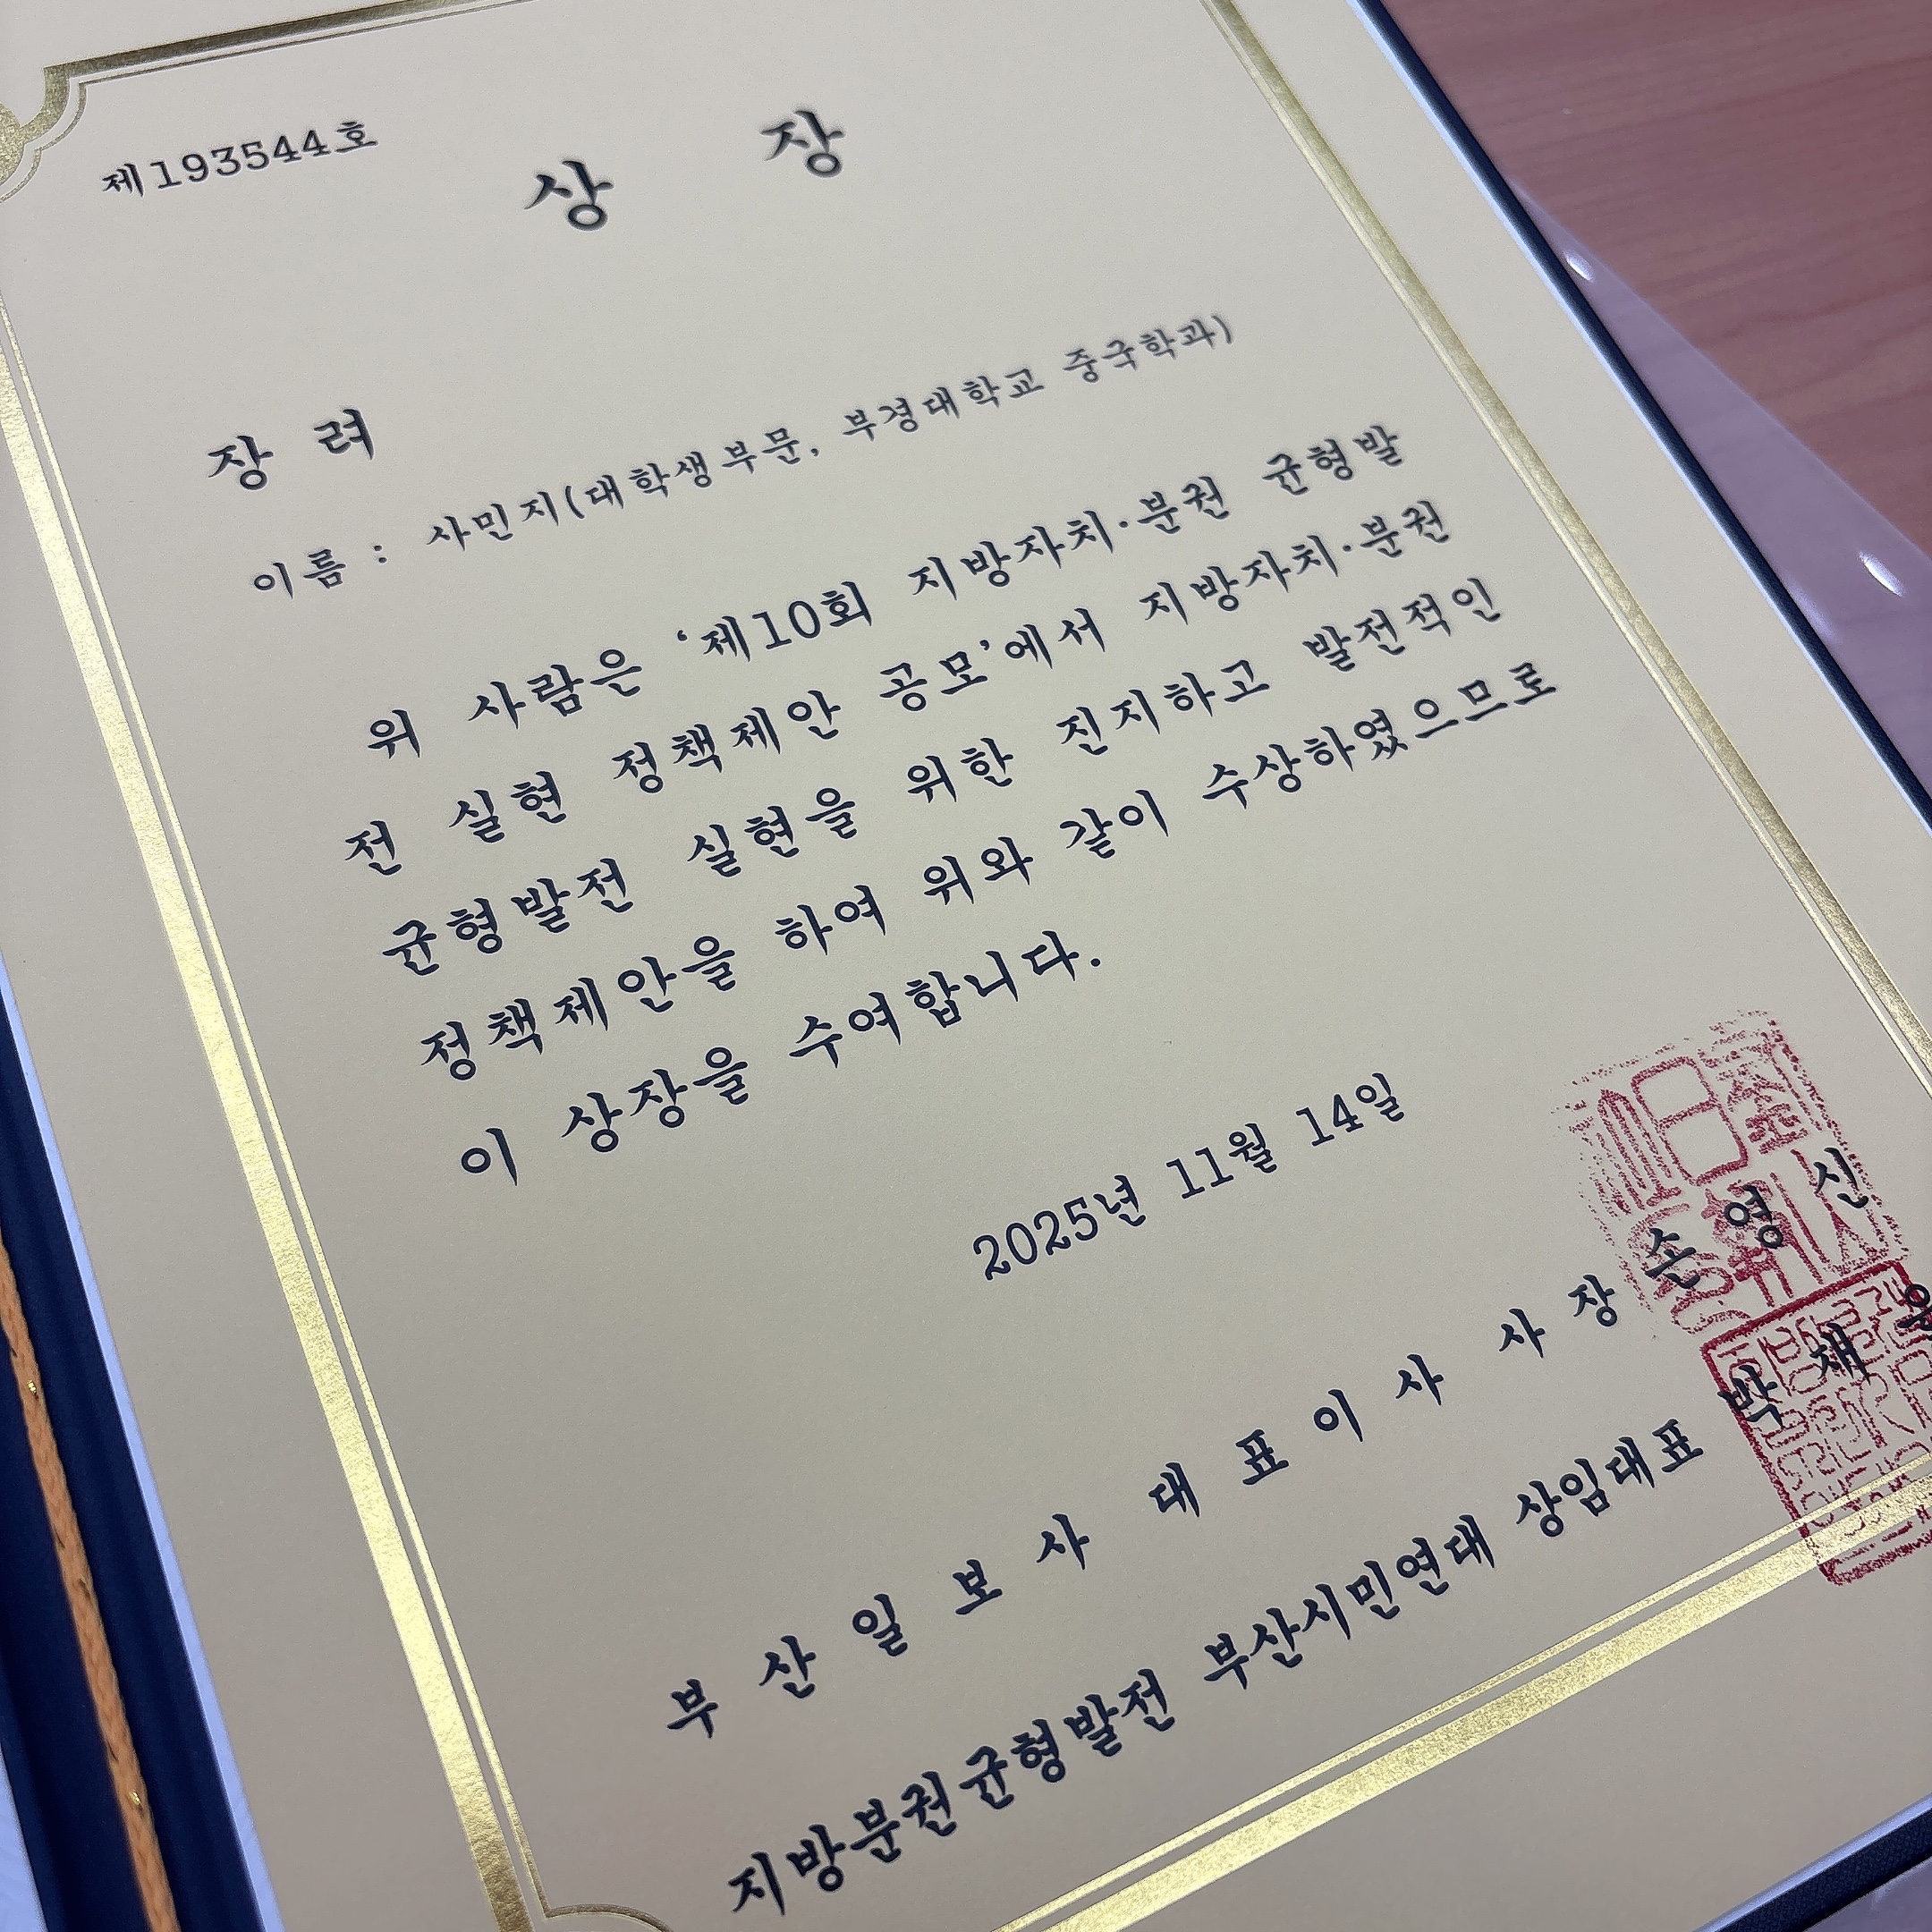 제193544호
상 장
장 려
이름 : 사민지(대학생부문, 부경대학교 중국학과)
위 사람은 ‘제10회 지방자치·분권 균형발
전 실현 정책제안 공모’에서 지방자치·분권
균형발전 실현을 위한 진지하고 발전적인
정책제안을 하여 위와 같이 수상하였으므로
이 상장을 수여합니다.
2025년 11월 14일
부 산 일 보 사 대 표 이 사 사 장 손 영 신
지방분권균형발전 부산시민연대 상임대표 박 재